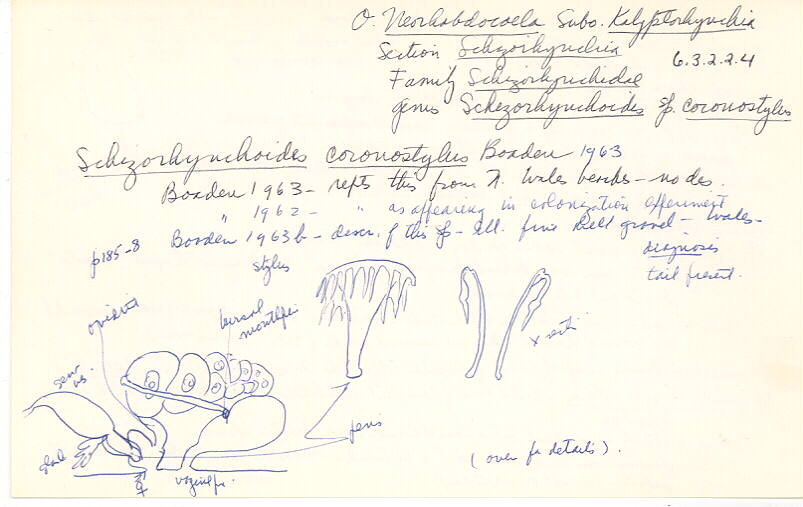 O. Neorhabdocoela Subo. Kalyptorhynchia
Section Schizorhynchia
6.3.2.2.4
Family Schizorhynchidae
genus Schizorhynchoides sp. coronostylus
Schizorhynchoides coronostylus Boaden 1963
Boaden 1963 - repts this from N. Wales beaches - no des.
" 1962 - " as appearing in colonization experiment
p185-8 Boaden 1963b - descr. of this sp - Ill. fine shell gravel - Wales -
diagnosis
tail present.
stylus
oviduct
bursal
mouthpiece
x section
sem
ves.
penis
gland
vaginal po.
(over for details).